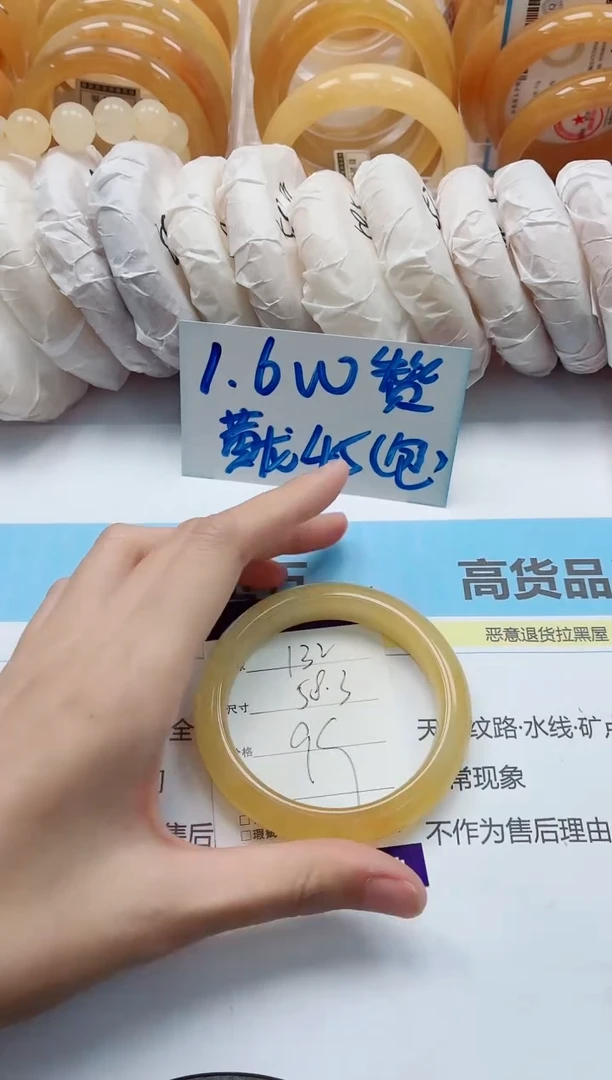 1.6W赞
黄龙45(包)
高货品
恶意退货拉黑屋
132
尺寸 58.3
格 95
全
天
纹路·水线·矿点
常现象
售后
不作为售后理由